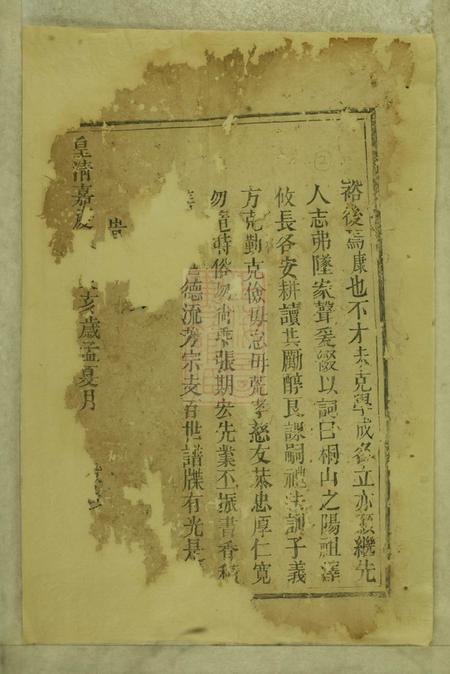 裕後焉康也不才未克學成名立亦願繼先
人志弗墜家聲爰綴以詞曰桐山之陽祖澤
攸長各安耕讀共勵醇良課嗣禮法訓子義
方克勤克儉毋怠毋荒孝慈友恭忠厚仁寬
勿習時俗勿尚乖張期宏先業丕振書香
德流芳宗支百世譜牒有光是
皇清嘉慶 亥歲孟夏月